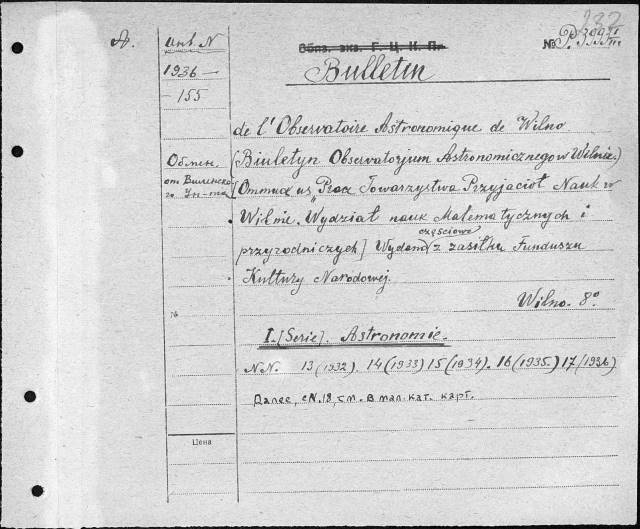 232
A.
инв. N
Обяз. экз. Г. Ц. К. П.
№ P. 
1936 —
— 155
Bulletin
de l'Observatoire Astronomique de Wilno
(Biuletyn Obserwatorjum Astronomicznego w Wilnie.)
Обмен.
от Виленско
го Ун-та
[Оттиск из „Prac Towarzystwa Przyjaciół Nauk w
Wilnie. Wydział nauk Matematycznych i
przyrodniczych] Wydano częściowo z zasiłku Funduszu
Kultury Narodowej.
Wilno. 8°
№
I. [Serie]. Astronomie.
N.N. 13 (1932). 14 (1933) 15 (1934). 16 (1935.) 17 (1936)
Далее, с N. 18, см. в мал. кат. карт.
Цена